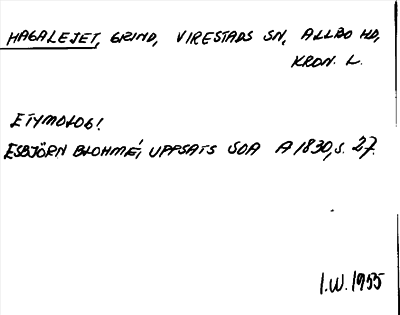 HAGALEJET, GRIND, VIRESTADS SN, ALLBO HD,
KRON. L.
ETYMOLOG!
ESBJÖRN BLOHMÉ, UPPSATS SOA A 1830, S. 27.
I.W. 1955